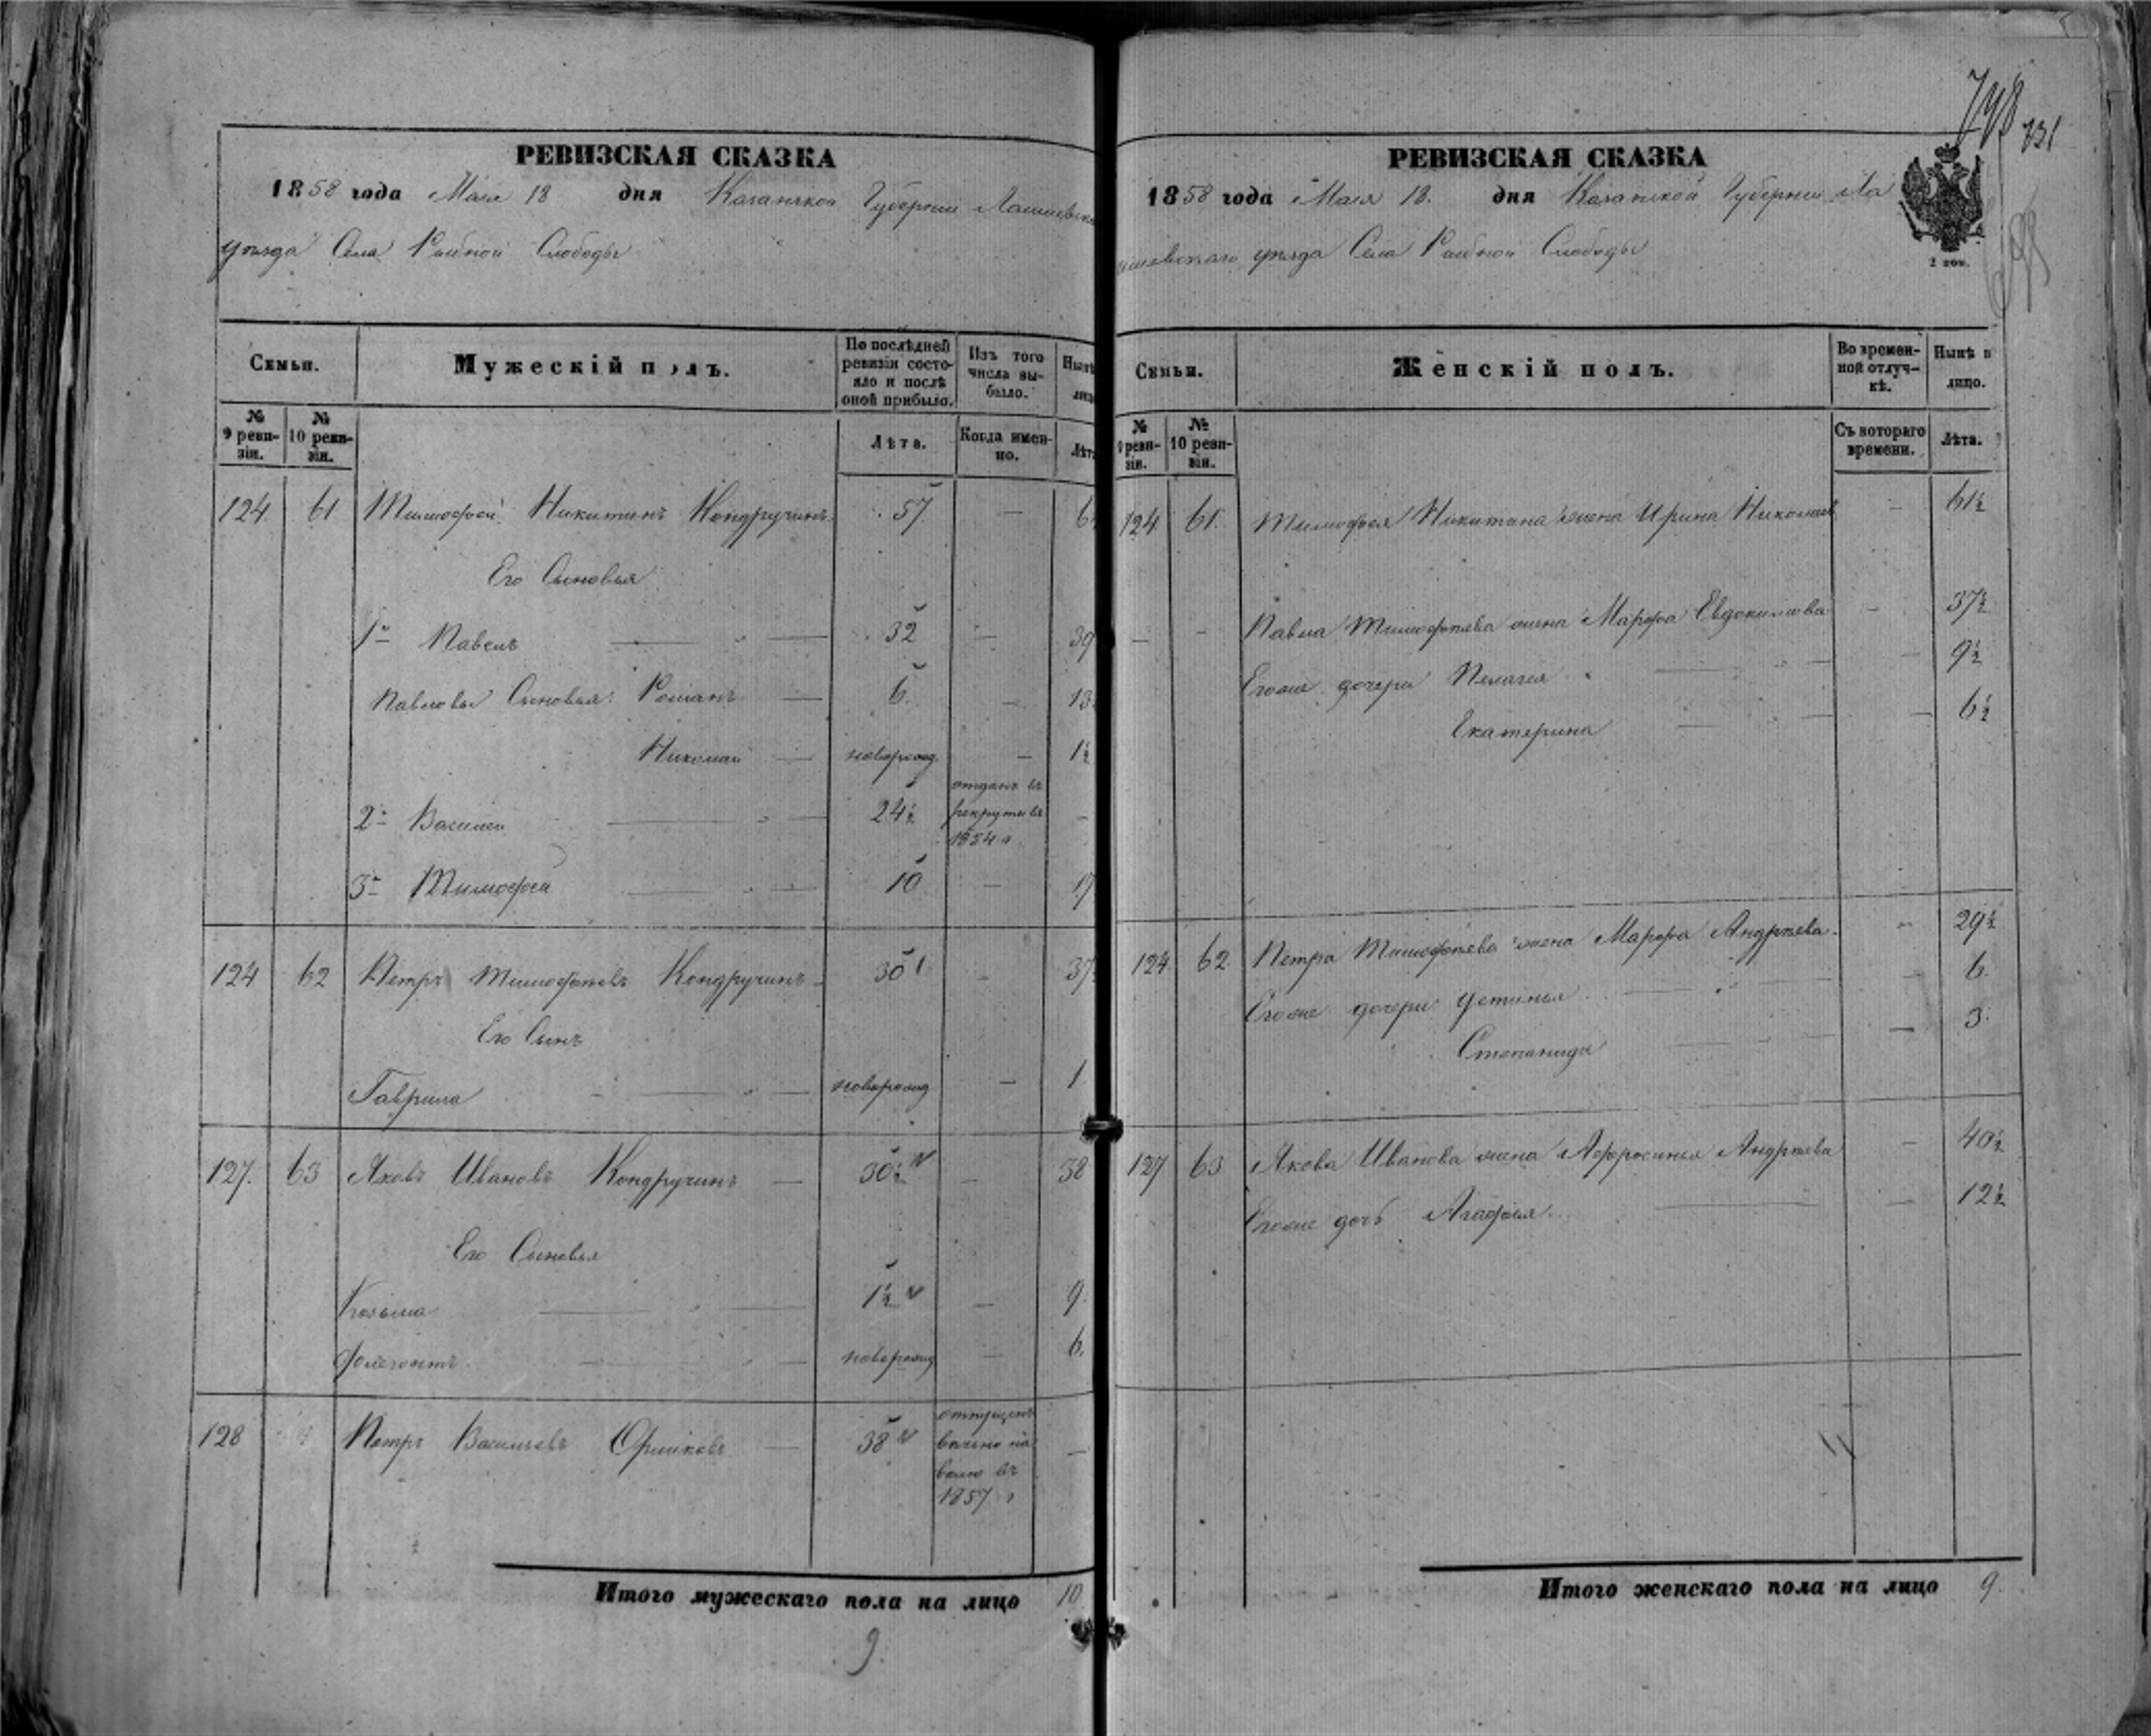 РЕВИЗСКАЯ СКАЗКА
1858 года Мая 18 дня Казанской Губернии Лаишевска
уѣзда Села Рыбной Слободы
Семьи.
Мужескій полъ.
По послѣдней ревизіи состояло и послѣ оной прибыло.
Изъ того числа выбыло.
Нынѣ
лиц
№ 9 ревизіи.
№ 10 ревизіи.
Лѣта.
Когда именно.
Лѣт
124 61 Тимофей Никитинъ Кондручинъ 57 — 6
Его Сыновья
1й Павелъ — " — 32 — 39
Павловы Сыновья: Романъ — 6 — 13
Николай — новорожд — 1½
2й Василей — " — 24½ отданъ въ рекруты въ 1854 г. –
3й Тимофей — " — 10 — 17
124 62 Петръ Тимофѣевъ Кондручинъ 30 1 – 37
Его Сынъ
Гаврила — " — новорожд — 1
127. 63 Яковъ Ивановъ Кондручинъ — 30½ – 38
Его Сыновья
Козьма — " — 1½ — 9.
Фолегонтъ — новорожд — 6.
128 Петръ Васильевъ — 38 отпущенъ вѣчно на волю въ 1857 г —
Итого мужескаго пола на лицо 10
9
748 731
698
РЕВИЗСКАЯ СКАЗКА
1858 года Мая 18. дня Казанской Губернии Ла
ишевскаго уѣзда Села Рыбной Слободы
2 коп.
Семьи.
Женскій полъ.
Во временной отлучкѣ.
Нынѣ н лицо.
№ ревизіи.
№ 10 ревизіи.
Съ котораго времени.
Лѣта.
124 61. Тимофея Никитина жена Ирина Николаев – 61½
— - Павла Тимофѣева жена Марфа Евдокимова – 37½
Егоже дочери Пелагея — 9½
Екатерина — 6½
124 62 Петра Тимофѣева жена Марфа Андрѣева – 29½
Егоже дочери Устинья — " — 6.
Степанида — 3.
127 63 Якова Иванова жена Афросинья Андрѣева – 40½
Егоже дочь Агафья — 12½
Итого женскаго пола на лицо 9.